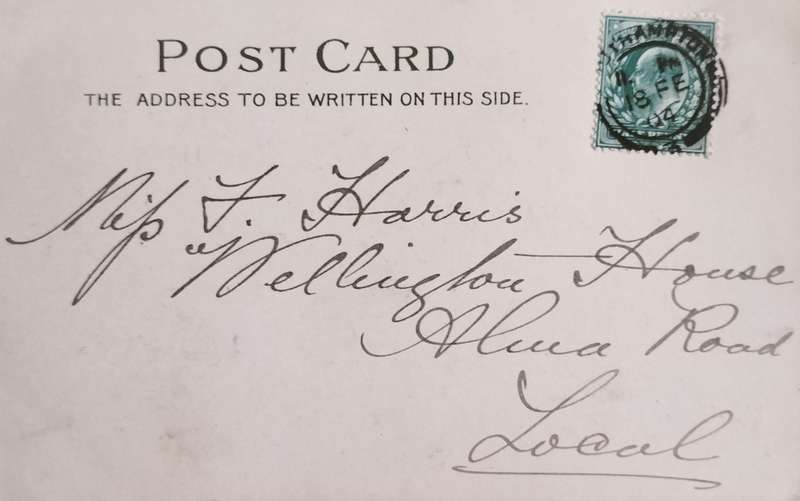 POST CARD
THE ADDRESS TO BE WRITTEN ON THIS SIDE.
THAMPTON
18 FE
04
Miss F. Harris
"Wellington House
Alma Road
Local